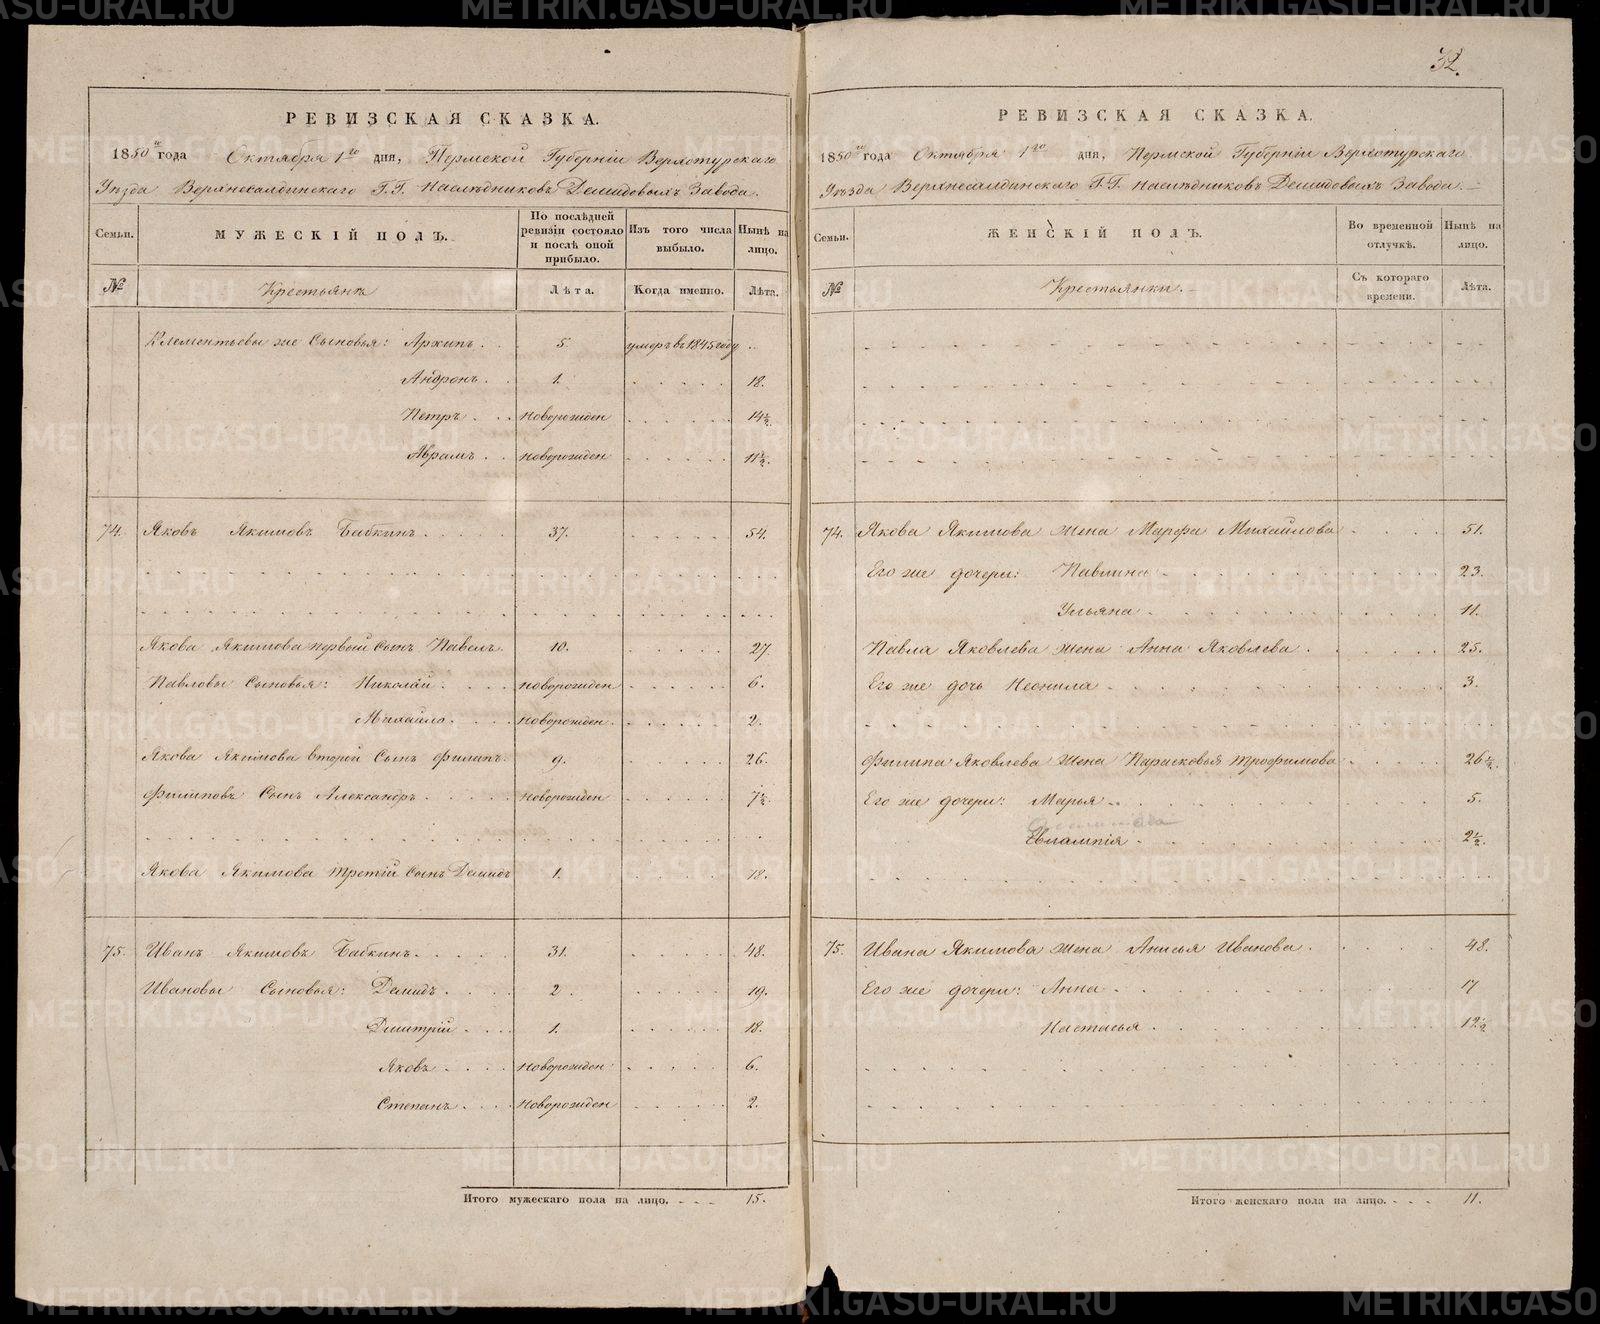 32.
РЕВИЗСКАЯ СКАЗКА.
1850го года Октября 1го дня, Пермской Губерніи Верхотурскаго
Уѣзда Верхнесалдинскаго Г.Г. Наслѣдниковъ Демидовыхъ Завода.
Семьи. МУЖЕСКІЙ ПОЛЪ. По послѣдней ревизіи состояло и послѣ оной прибыло. Изъ того числа выбыло. Нынѣ на лицо.
№ Крестьянъ Лѣта. Когда именно. Лѣта.
Клементьевы же Сыновья: Архипъ 5. умеръ въ 1845 году
Андронъ 1. 18.
Петръ новорожден 14½
Аврамъ новорожден 11½.
74. Яковъ Якимовъ Бабкинъ 37. 54.
Якова Якимова первый сынъ Павелъ 10. 27
Павловы Сыновья: Николай новорожден 6.
Михайло новорожден 2.
Якова Якимова второй Сынъ Филипъ 9. 26.
Филиповъ Сынъ Александръ новорожден 7½.
Якова Якимова третій сынъ Демидъ 1. 18.
75. Иванъ Якимовъ Бабкинъ 31. 48.
Ивановы Сыновья: Демидъ 2. 19.
Дмитрій 1. 18.
Яковъ новорожден 6.
Степанъ новорожден 2.
Итого мужескаго пола на лицо. 15.
РЕВИЗСКАЯ СКАЗКА.
1850го года Октября 1го дня, Пермской Губерніи Верхотурскаго
Уѣзда Верхнесалдинскаго Г.Г. Наслѣдниковъ Демидовыхъ Завода.
Семьи. ЖЕНСКІЙ ПОЛЪ. Во временной отлучкѣ. Нынѣ на лицо.
№ Крестьянки. Съ котораго времени. Лѣта.
74. Якова Якимова жена Марфа Михайлова 51.
Его же дочери: Павлина 23.
Ульяна 11.
Павла Яковлева жена Анна Яковлева 25.
Его же дочь Неонила 3.
Филипа Яковлева жена Парасковья Трофимова 26½.
Его же дочери: Марья 5.
Евлампія 2½.
75. Ивана Якимова жена Анисья Иванова 48.
Его же дочери: Анна 17
Настасья 12½
Итого женскаго пола на лицо. 11.
METRIKI.GASO-URAL.RU